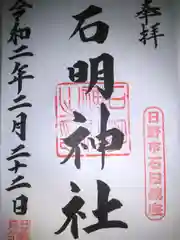 奉拝
日野市石田鎮座
石明神社
令和二年二月二十三日